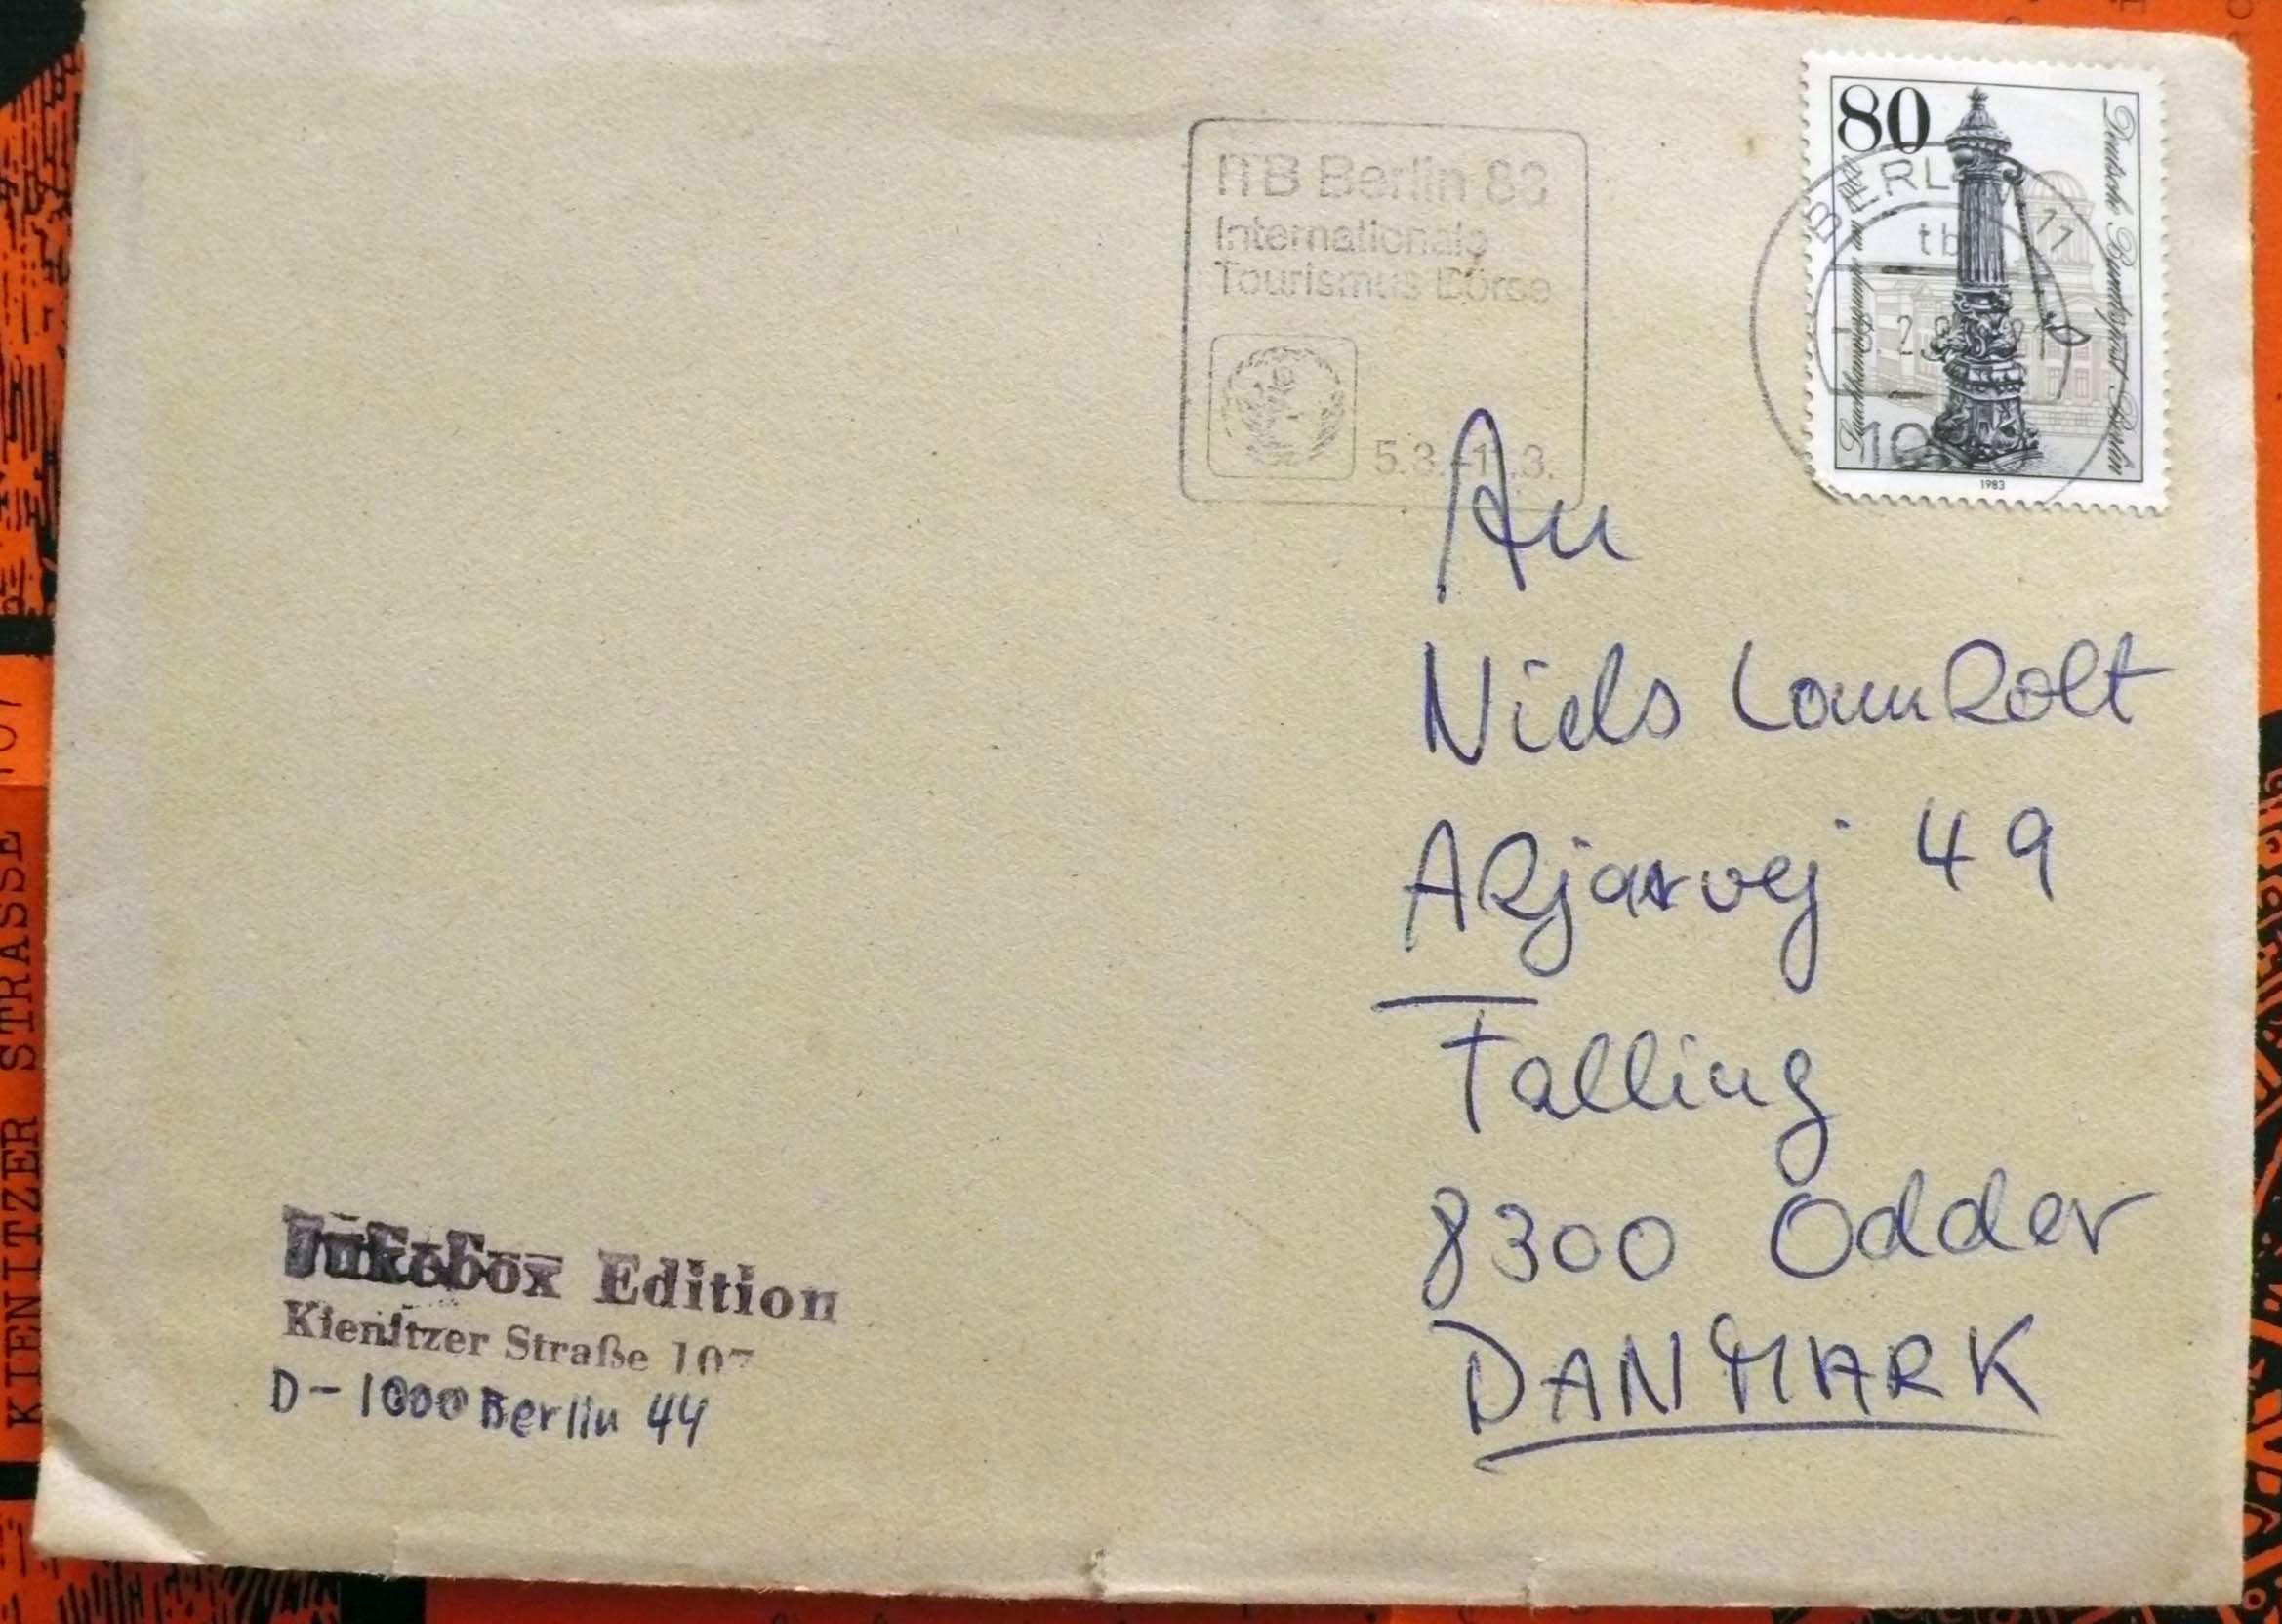 ITB Berlin 83
Internationale
Tourismus Börse
5.3.-11.3.
80
Deutsche Bundespost Berlin
1983
BERLIN 11
tb
An
Niels Lomholt
Ahjarvej 49
Falling
8300 Odder
DANMARK
Jukebox Edition
Kienitzer Straße 107
D-1000 Berlin 44
KIENITZER STRASSE 107